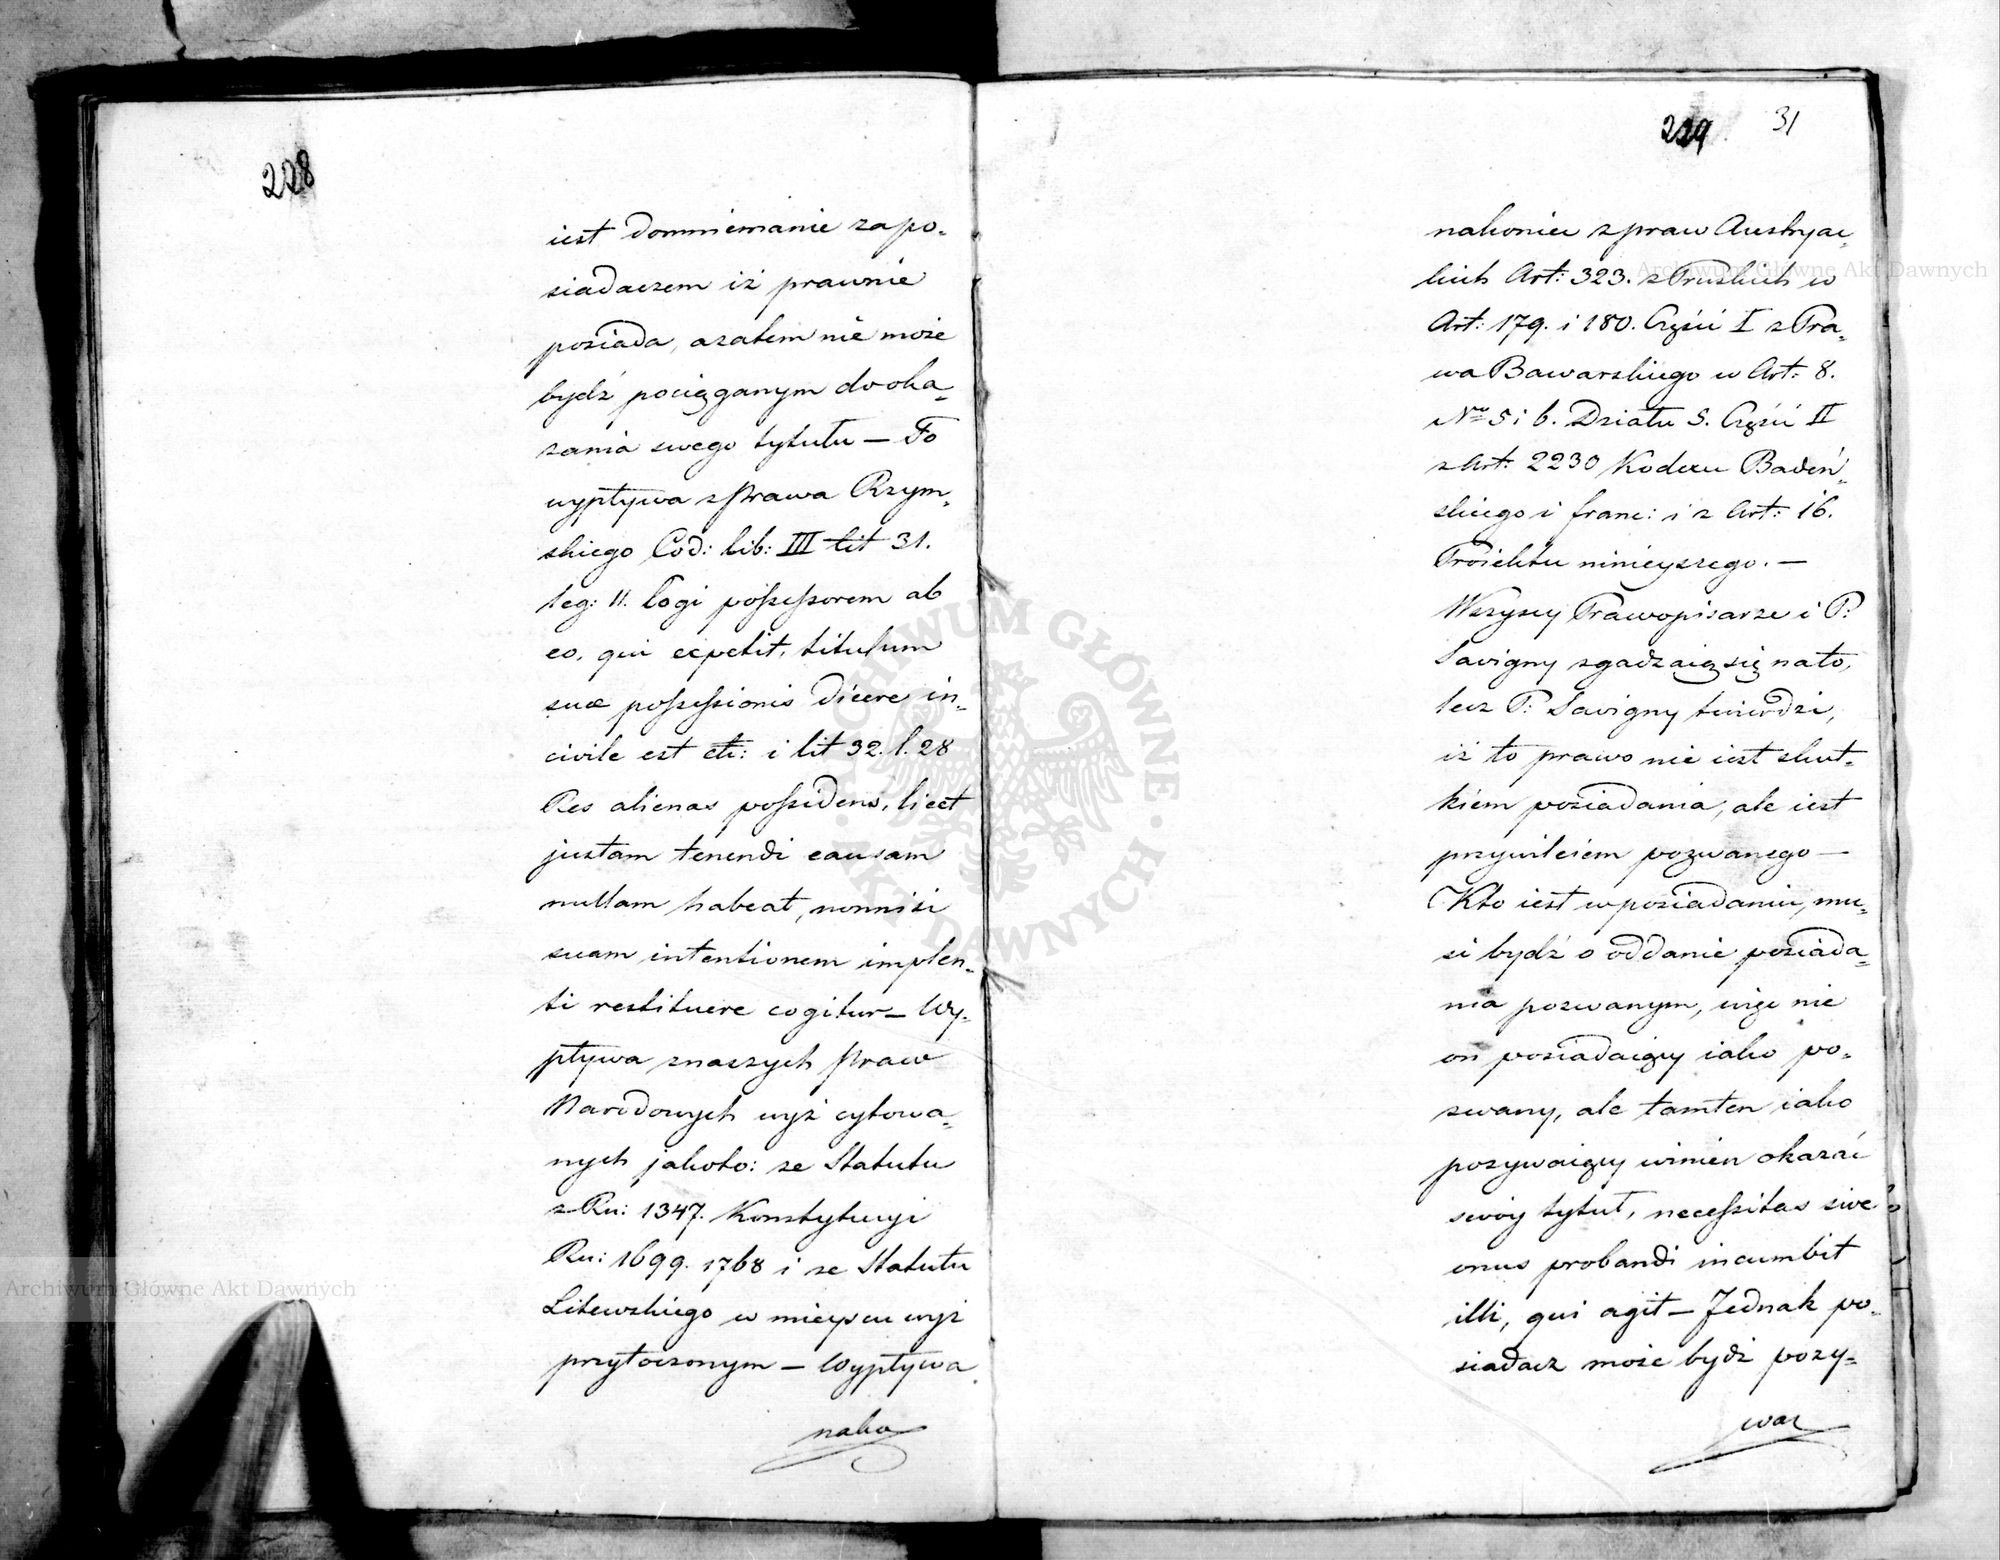 228
iest domniemanie za po-
siadaczem iż prawnie
posiada, a zatem nie może
bydź pociąganym do oka-
zania swego tytułu — To
wypływa z prawa Rzym-
skiego Cod: lib: III tit 31.
leg: 11. Cogi possessorem ab
eo, qui expetit, titulum
suæ possessionis dicere in-
civile est etc: i tit 32. l. 28
Res alienas possidens, licet
justam tenendi causam
nullam habeat, nonnisi
suam intentionem implen-
ti restituere cogitur — Wy-
pływa z naszych praw
Narodowych wyż cytowa-
nych jakoto: ze Statutu
z Ru: 1347. Konstytucyi
Ru: 1699. 1768 i ze Statutu
Litewskiego w mieyscu wyż
przytoczonym — Wypływa
nako
229 31
nakoniec z praw Austryac-
kich Art: 323. z Pruskich w
Art: 179. i 180. Części I z Pra-
wa Bawarskiego w Art: 8.
Nro 5 i 6. Działu 5. Części II
z Art: 2230 Kodexu Badeń-
skiego i franc: i z Art: 16.
Proiektu ninieyszego. —
Wszyscy Prawopisarze i P:
Savigny zgadzaią się na to,
lecz P: Savigny twierdzi,
iż to prawo nie iest skut-
kiem posiadania, ale iest
przywileiem pozwanego —
Kto iest w posiadaniu, mu-
si bydź o oddanie posiada-
nia pozwanym, więc nie
on posiadaiący iako po-
zwany, ale tamten iako
pozywaiący winien okazać
swóy tytuł, necessitas sive
onus probandi incumbit
illi, qui agit — Jednak po-
siadacz może bydź pozy-
wac
Archiwum Główne Akt Dawnych
Archiwum Główne Akt Dawnych
ARCHIWUM GŁÓWNE AKT DAWNYCH